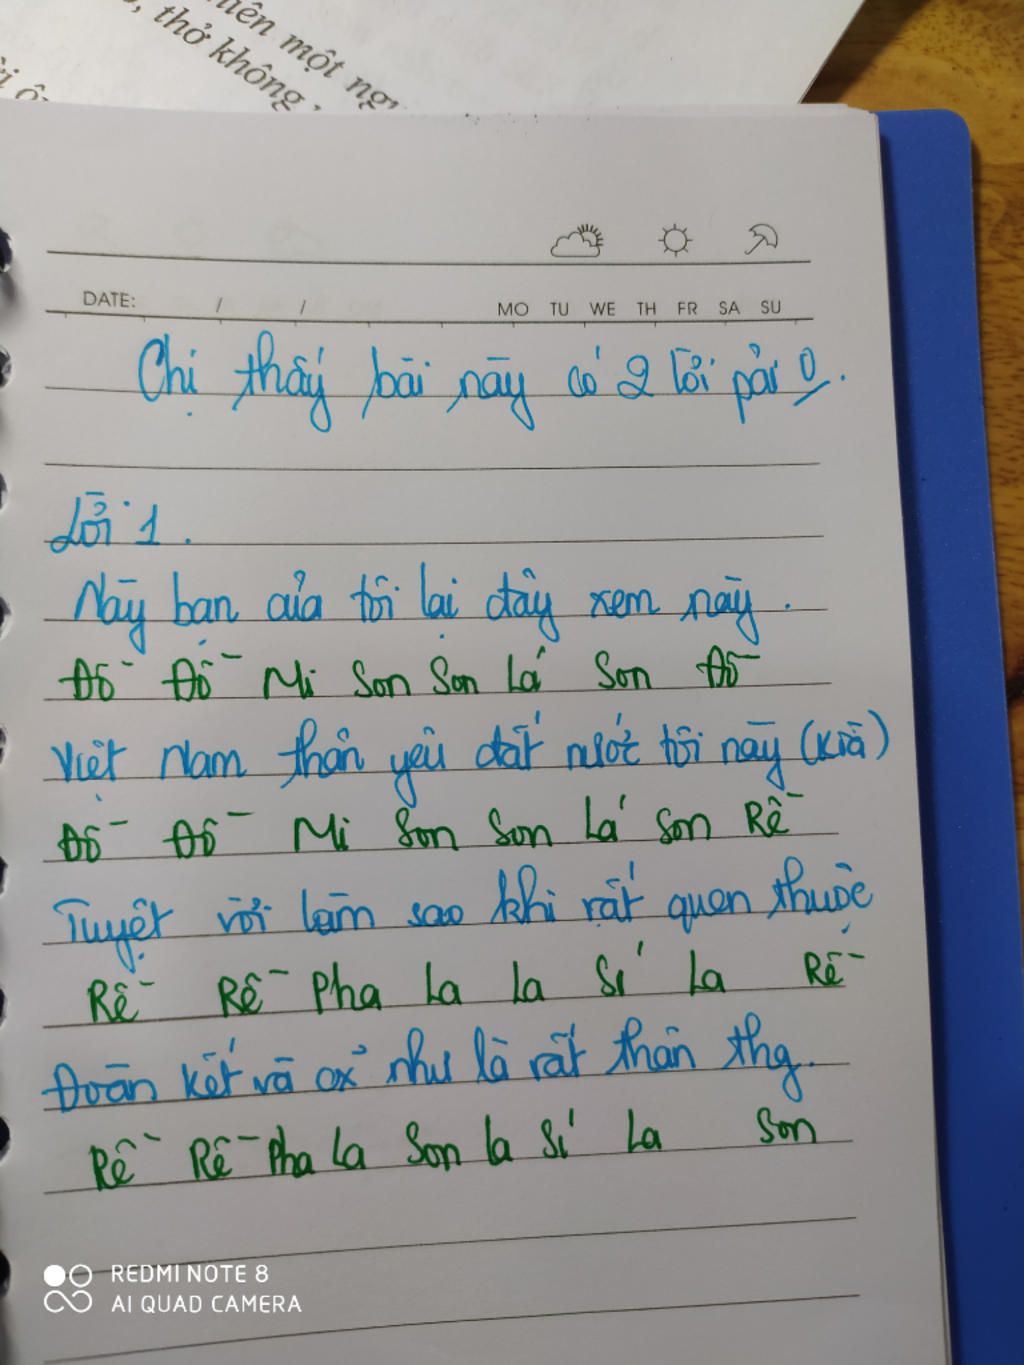 niên một ngư
, thở không
ời ô
DATE: / / MO TU WE TH FR SA SU
Chị thấy bài này có 2 lời pải 0.
Lời 1.
Này bạn của tôi lại đây xem này.
Đồ Đồ Mi Son Son Lá Son Đồ
Việt Nam thân yêu đất nước tôi này (kìa)
Đồ Đồ Mi Son Son Lá Son Rề
Tuyệt vời làm sao khi rất quen thuộc
Rề Rề Pha La La Sí La Rề
Đoàn kết và ox như là rất thân thg.
Rề Rề Pha La Son la Sí La Son
REDMI NOTE 8
AI QUAD CAMERA